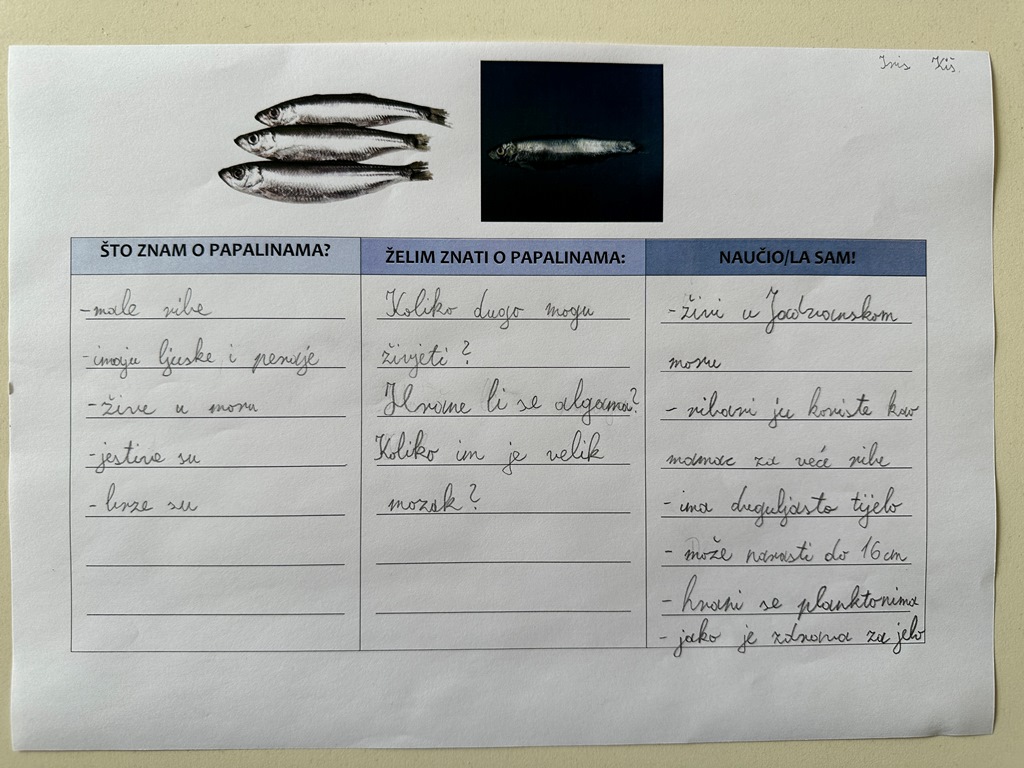 Iris Kiš
ŠTO ZNAM O PAPALINAMA?
-male ribe
-imaju ljuske i peraje
-žive u moru
-jestive su
-brze su
ŽELIM ZNATI O PAPALINAMA:
Koliko dugo mogu
živjeti?
Hrane li se algama?
Koliko im je velik
mozak?
NAUČIO/LA SAM!
-živi u Jadranskom
moru
- ribari ju koriste kao
mamac za veće ribe
- ima duguljasto tijelo
- može narasti do 16 cm
- hrani se planktonima
- jako je zdrava za jelo